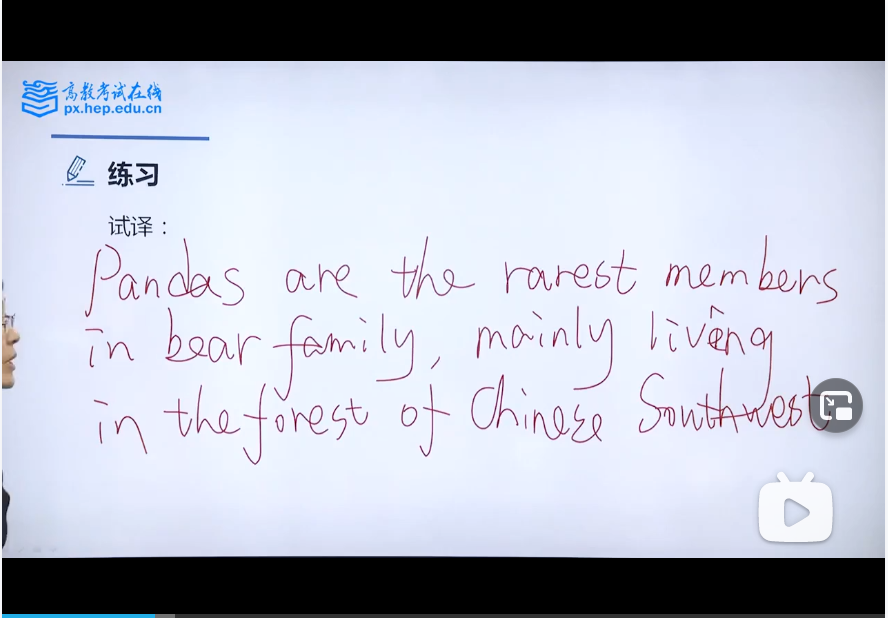 高教考试在线
px.hep.edu.cn
练习
试译：
Pandas are the rarest members
in bear family, mainly living
in the forest of Chinese Southwest